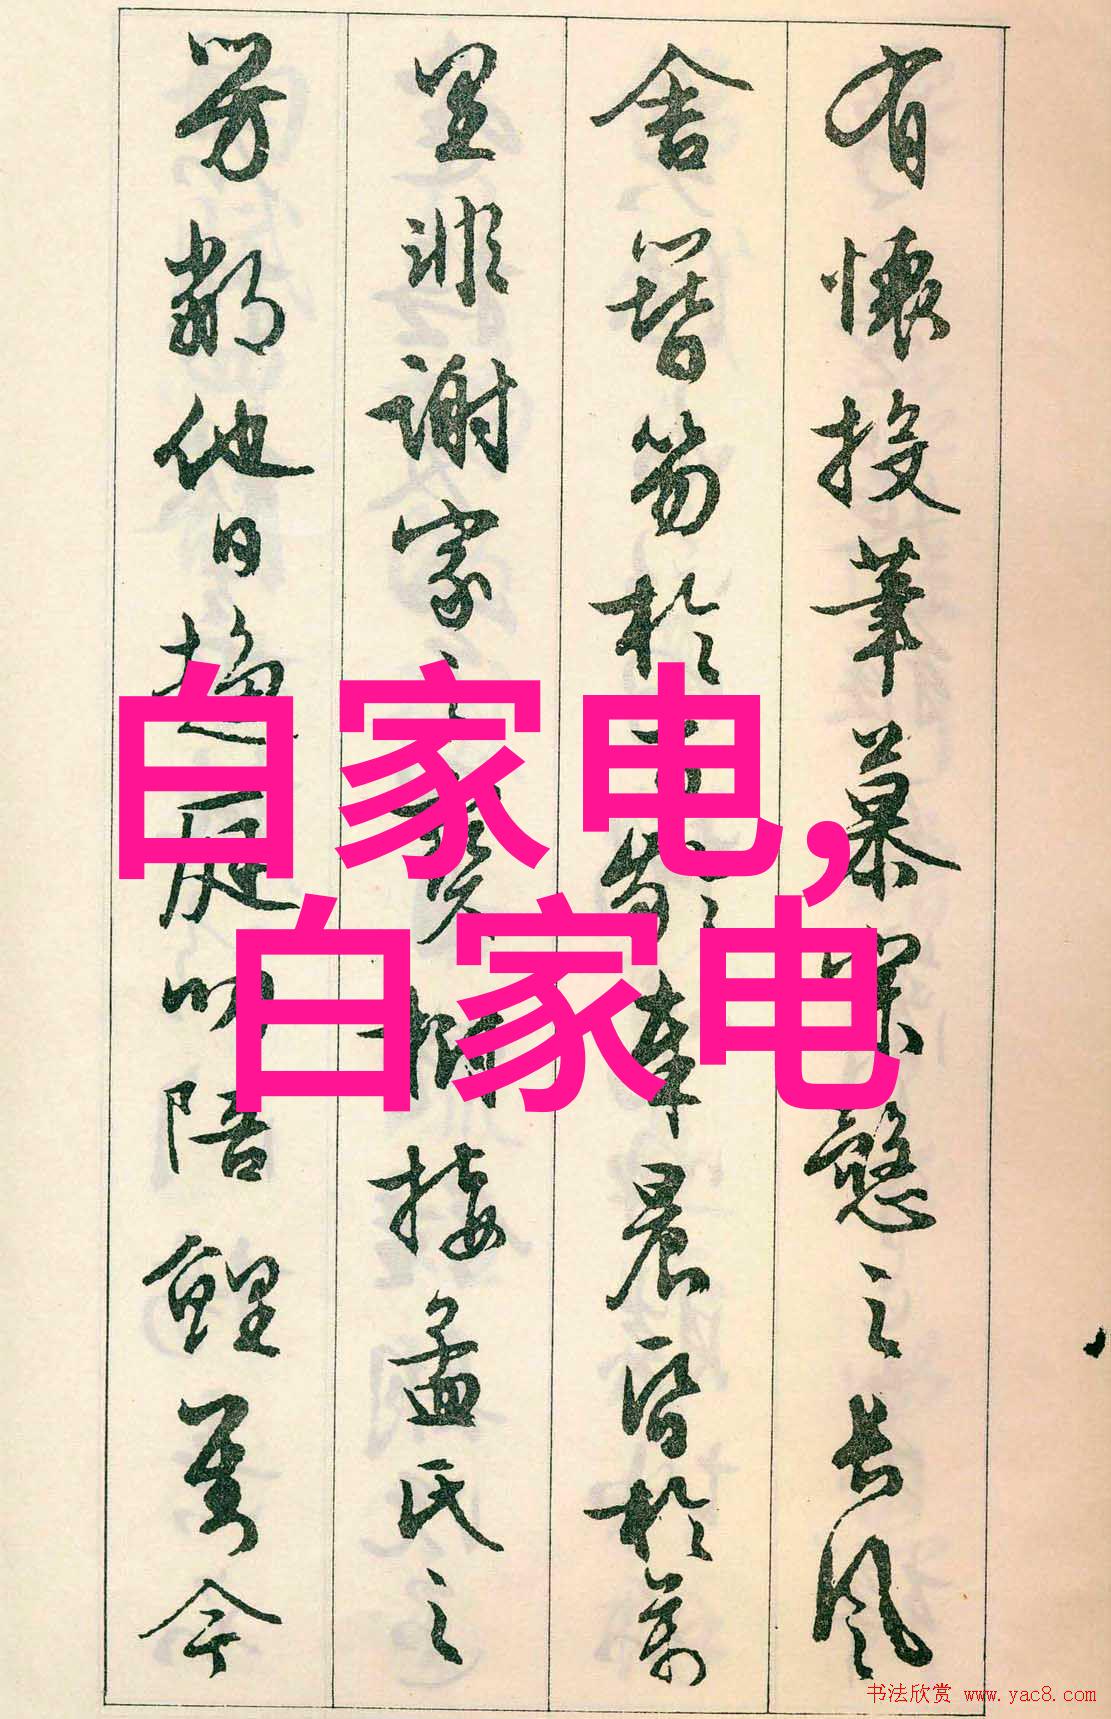 有懷投筆慕宗愨之長風
舍簪笏於百齡奉晨昏於萬
里非謝家之寶樹接孟氏之
芳鄰他日趨庭叨陪鯉對今
白家电,
白家电
书法欣赏 www.yac8.com